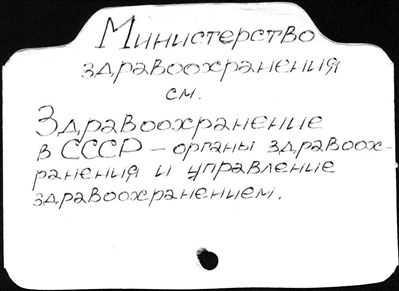 Министерство
здравоохранения
см.
Здравоохранение
в СССР – органы здравоох-
ранения и управление
здравоохранением.